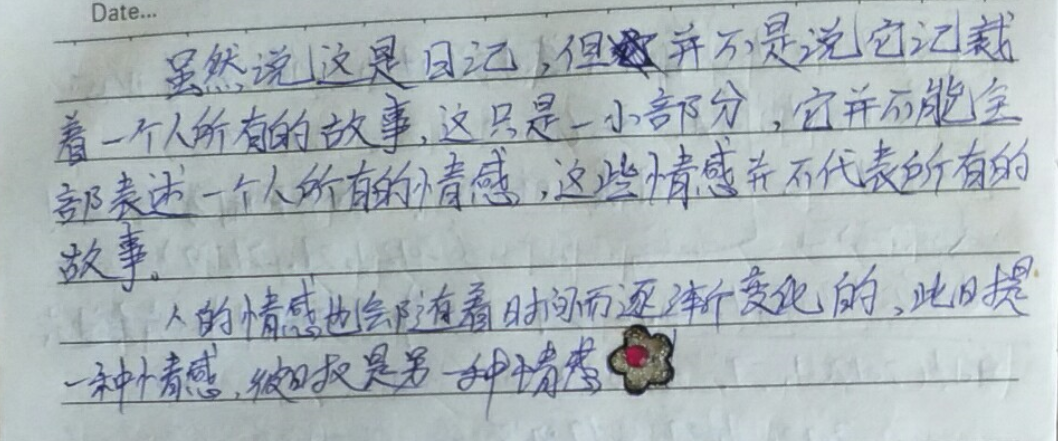 Date...
虽然说这是日记,但并不是说它记载
着一个人所有的故事,这只是一小部分,它并不能全
部表述一个人所有的情感,这些情感并不代表所有的
故事。
人的情感也会随着时间而逐渐变化的,此日是
一种情感,彼日又是另一种情感